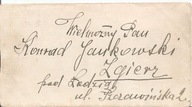 Wielmożny Pan
Konrad Jankowski
Zgierz
pod Łodzią
ul.